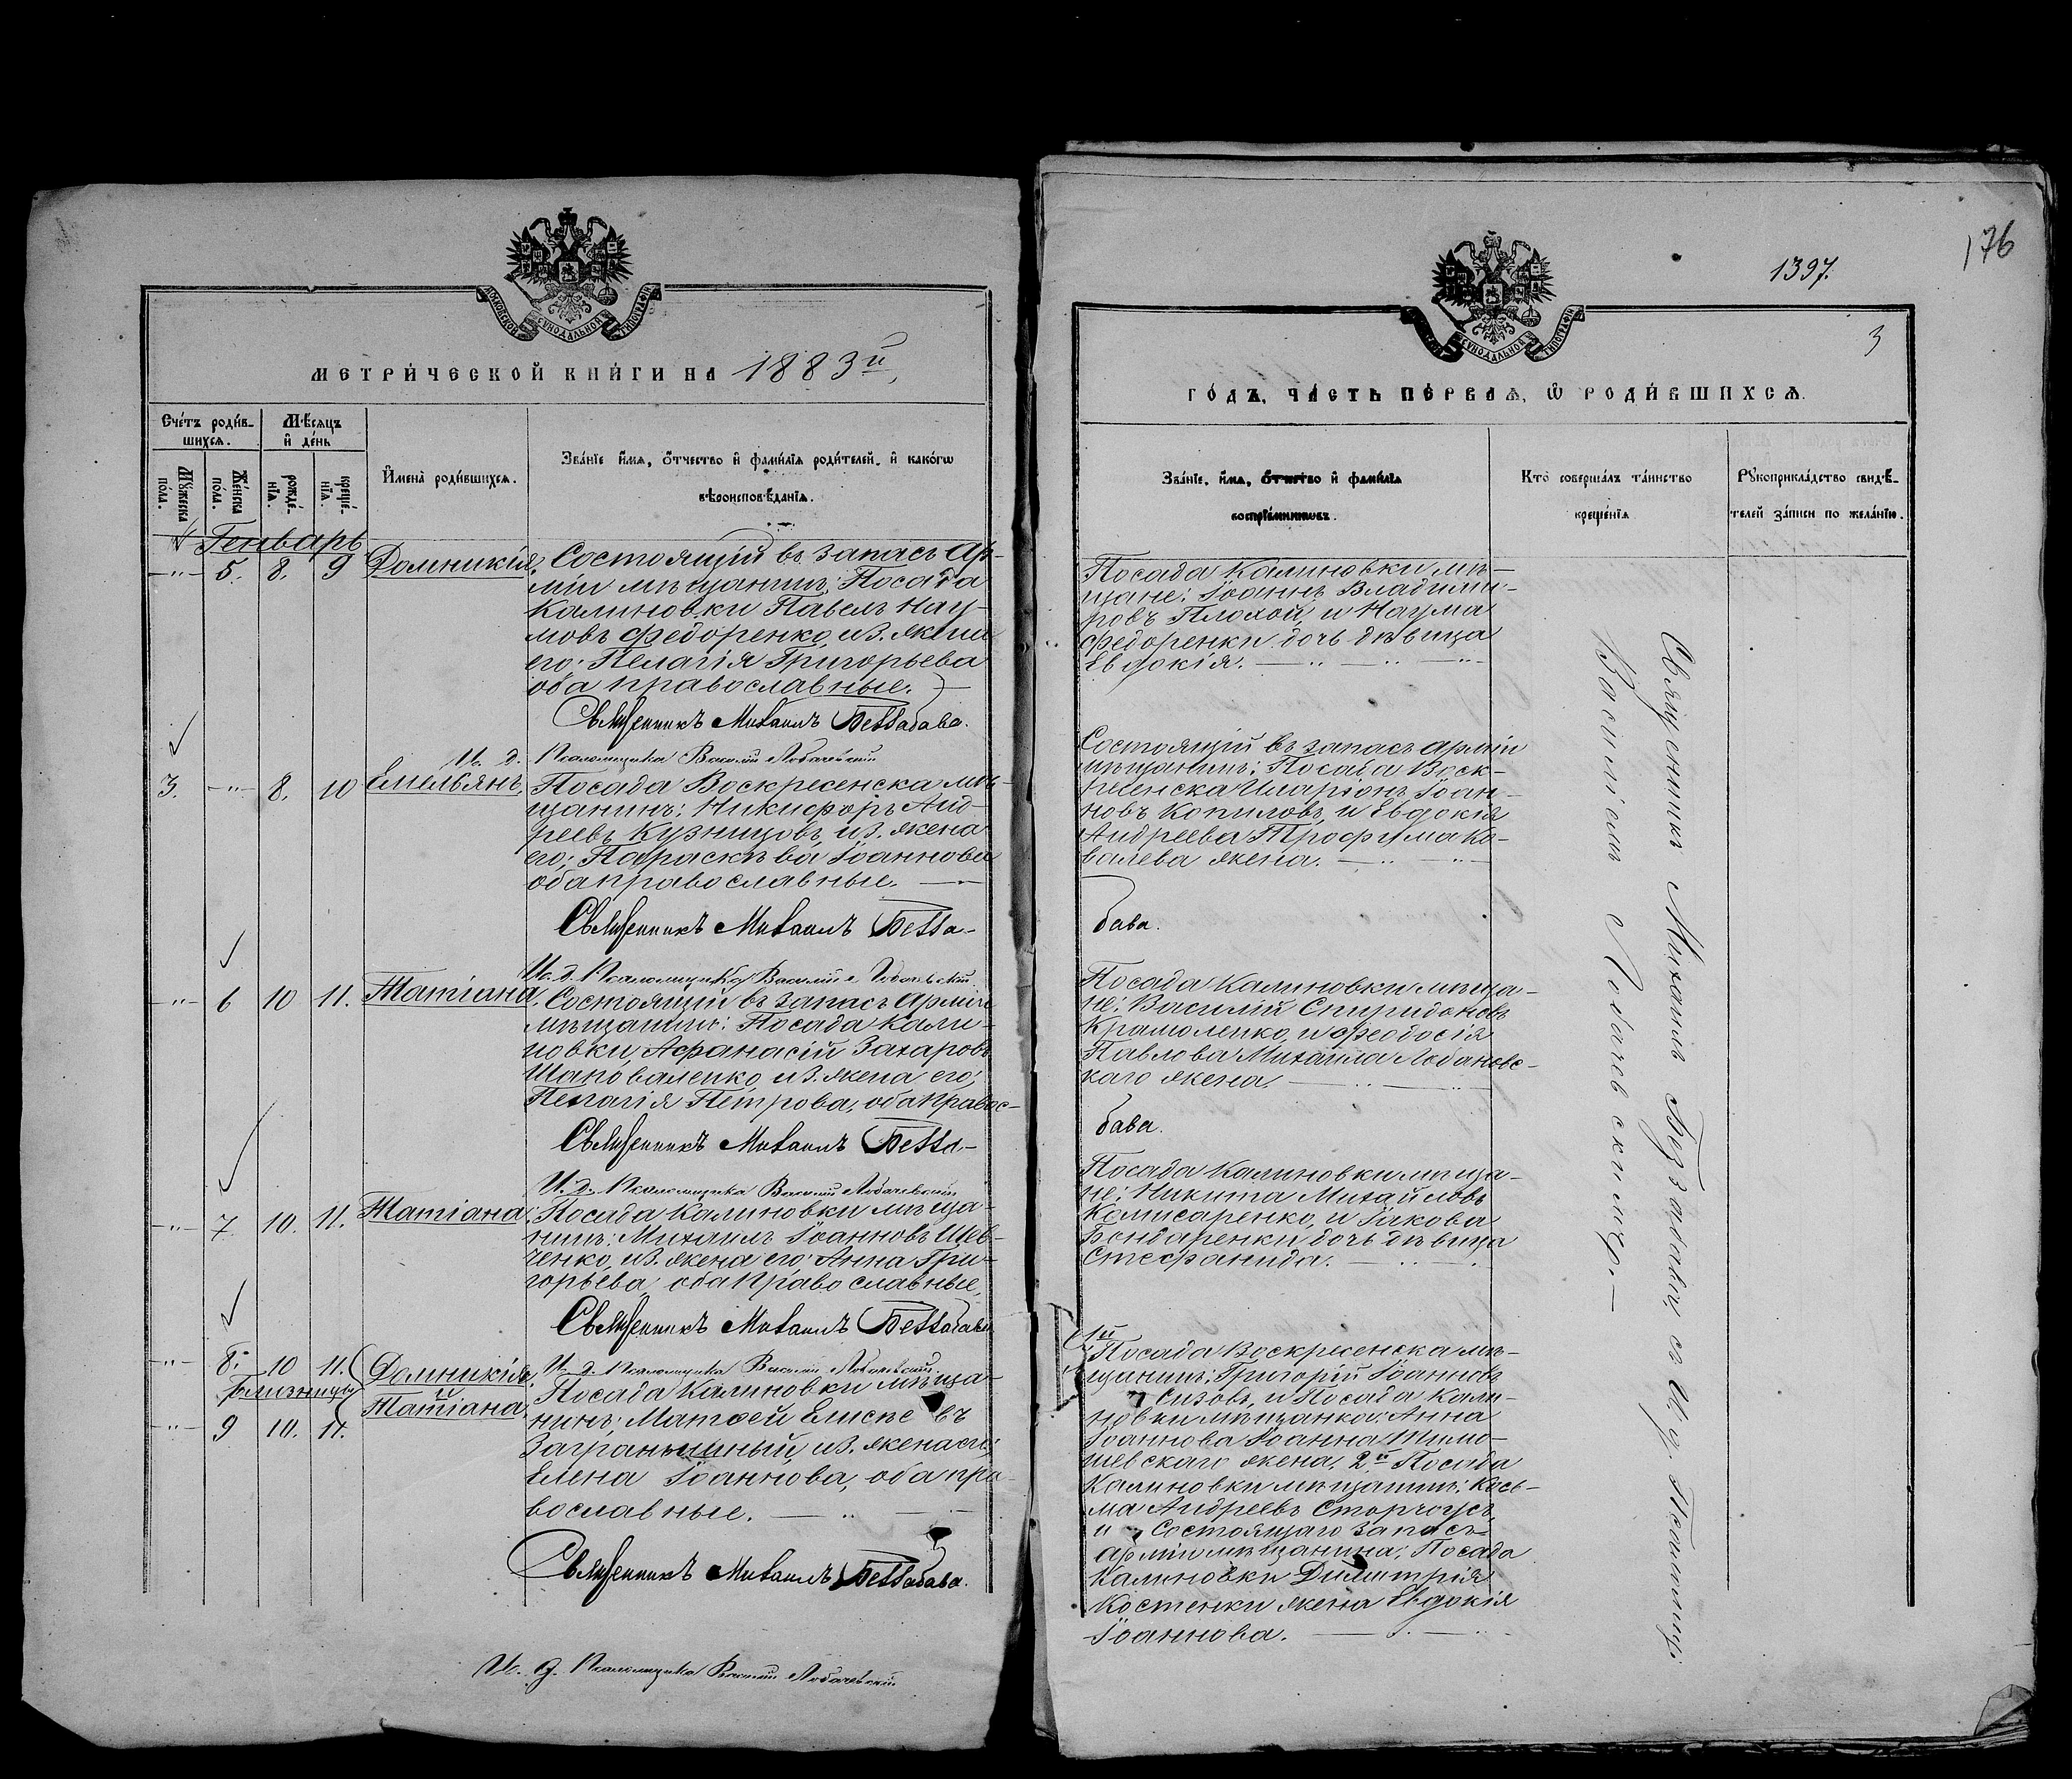 176
1397.
3
МОСКОВСКОЙ СУНОДАЛЬНОЙ ТИПОГРАФІИ
МЕТРИЧЕСКОЙ КНИГИ НА 1883й,
Счетъ родив-
шихся.
Мѣсяцъ
и день
Мужеска
пола.
Женска
пола.
рожде-
нія.
креще-
нія.
Имена родившихся.
Званіе имя, отчество и фамилія родителей, и какогω
вѣроисповѣданія.
Генварь
-"- 5. 8. 9 Домникія,
Состоящій въ запасѣ Ар-
міи мѣщанинъ; Посада
Калиновки Павелъ Нау-
мовъ Федоренко, из. жена
его; Пелагія Григорьева
оба православные.
Священникъ Михаилъ Беззабава.
И. д. Псаломщика Василій Лобачевскій
3. -"- 8. 10 Емельянъ,
Посада Воскресенска мѣ-
щанинъ: Никифоръ Анд-
реевъ Кузнецовъ, из. жена
его; Параскѣва Іоаннова
оба православные.
Священникъ Михаилъ Безза-
И. д. Псаломщика Василій Лобачевскій
-"- 6 10 11. Татіана,
Состоящій въ запасѣ Арміи
мѣщанинъ: Посада Кали-
новки, Афанасій Захаровъ
Шаповаленко, из. жена его;
Пелагія Петрова, оба правос-
Священникъ Михаилъ Безза-
И. д. Псаломщика Василій Лобачевскій
-"- 7. 10. 11. Татіана,
Посада Калиновки мѣща-
нинъ: Михаилъ Іоанновъ Шев-
ченко, из. жена его; Анна Гри-
горьева, оба православные,
Священникъ Михаилъ Беззабава
И. д. Псаломщика Василій Лобачевскій
-"- 8. 10 11. Домникія,
близнецы и
-"- 9 10. 11. Татіана.
Посада Калиновки мѣща-
нинъ; Матѳей Елисѣевъ
Заграничный, из. жена его;
Елена Іоаннова, оба пра-
вославные.
Священникъ Михаилъ Беззабава.
И. д. Псаломщика Василій Лобачевскій
ГОДЪ, ЧАСТЬ ПЕРВАЯ, Ѿ РОДИВШИХСЯ.
Званіе, имя, отчество и фамилія
воспріемниковъ.
Кто совершалъ таинство
крещенія
Рукоприкладство свидѣ-
телей записи по желанію.
Посада Калиновки мѣ-
щане: Іоаннъ Владими-
ровъ Плохой, и Наума
Федоренки дочь дѣвица
Евдокія.
Состоящій въ запасѣ арміи
мѣщанинъ: Посада Воск-
ресенска Иларіонъ Іоан-
новъ Копиловъ, и Евдокія
Андреева Трофима Ко-
валева жена.
бава.
Посада Калиновки мѣща-
не: Василій Спиридоновъ
Крамоленко, и Феодосія
Павлова Михаила Лобановс-
каго жена.
бава.
Посада Калиновки мѣща-
не: Никита Михайловъ
Комисаренко, и Іакова
Бондаренки дочь дѣвица
Стефанида.
1й
Посада Воскресенска мѣ-
щанинъ; Григорій Іоанновъ
Сизовъ, и Посада Кали-
новки мѣщанка: Анна
Іоаннова Іоанна Тимо-
шевскаго жена, 2й Посада
Калиновки мѣщанинъ; Кось-
ма Андреевъ Сторчоусъ,
и Состоящаго запасѣ
арміи мѣщанина; Посада
Калиновки Димитрія
Костенки жена Евдокія
Іоаннова.
Священникъ Михаилъ Беззабава, съ И. д. Псаломщ.
Василіемъ Лобачевскимъ.